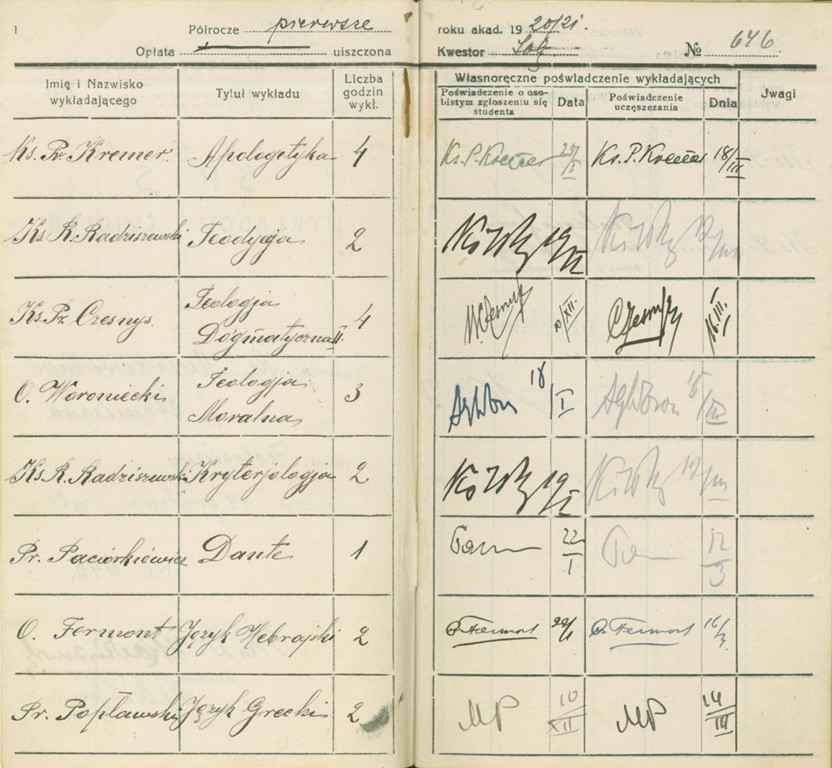 1
Półrocze pierwsze roku akad. 19 20/21.
Opłata uiszczona Kwestor № 646
Imię i Nazwisko wykładającego
Tytuł wykładu
Liczba godzin wykł.
Własnoręczne poświadczenie wykładających
Poświadczenie o osobistym zgłoszeniu się studenta
Data
Poświadczenie uczęszczania
Dnia
Uwagi
Ks. Pr. Kremer. Apologetyka 4 Ks. P. Kremer Ks. P. Kremer 18/III
Ks. R. Radziszewski Teodyceja 2 19/I
Ks. Pr. Czesnys. Teologja
Dogmatyczna II. 4 10/XII. Czesnys 16.III.
O. Woroniecki Teologja
Moralna 3 18/I 15/III
Ks. R. Radziszewski Kryterjologja 2 19/I
Pr. Paciorkiewicz Dante 1 22/I 12/3
O. Fermont Język Hebrajski 2 O. Fermont O. Fermont
Pr. Popławski Język Grecki 2 MP 10/XII MP 14/III